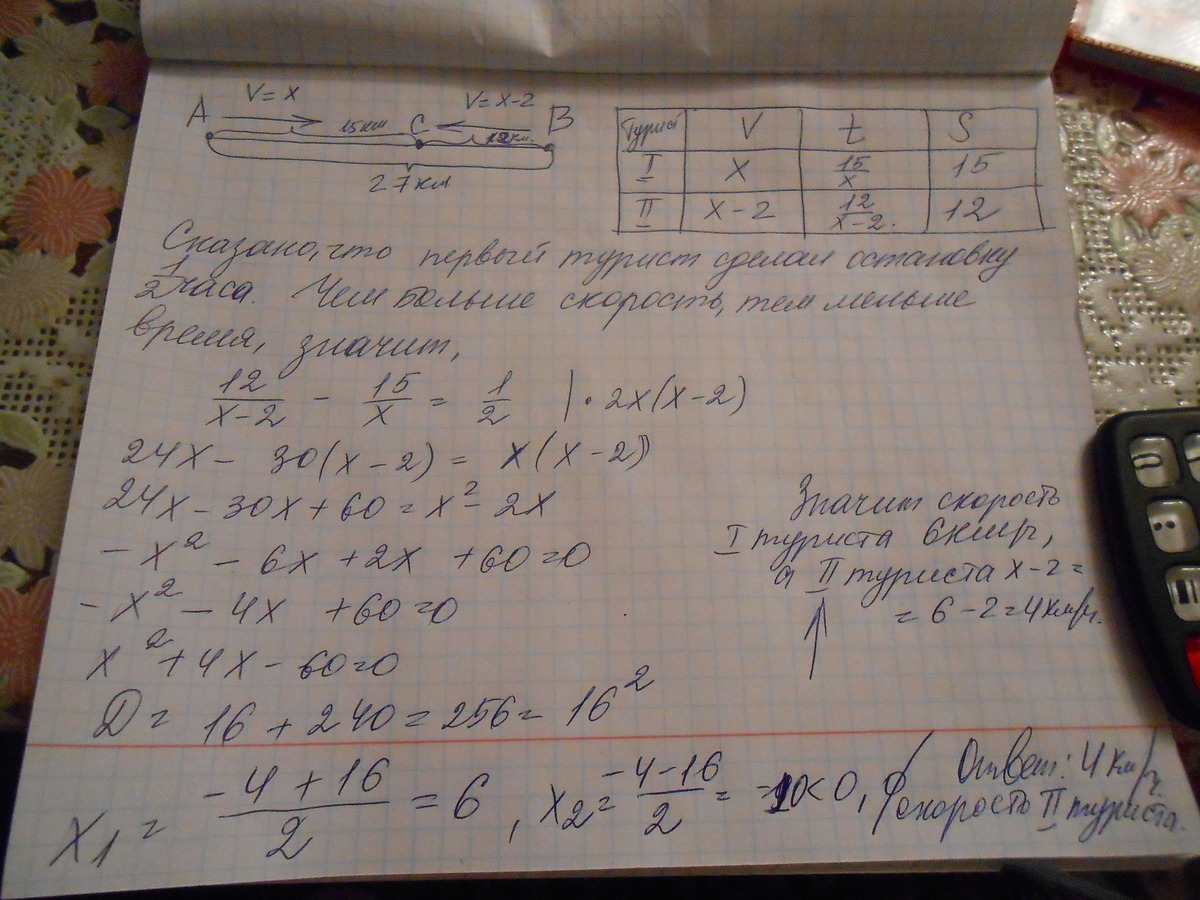 V = x V = x-2
A 15 км C 12 км. B
27 км
Турист V t S
I x 15/x 15
II x-2 12/(x-2). 12
Сказано, что первый турист сделал остановку
1/2 часа. Чем больше скорость, тем меньше
время, значит,
12/(x-2) - 15/x = 1/2 | · 2x(x-2)
24x - 30(x-2) = x(x-2)
24x - 30x + 60 = x² - 2x
-x² - 6x + 2x + 60 = 0
-x² - 4x + 60 = 0
x² + 4x - 60 = 0
D = 16 + 240 = 256 = 16²
x₁ = (-4 + 16)/2 = 6, x₂ = (-4-16)/2 = -10 < 0,
Значит скорость
I туриста 6 км/ч,
а II туриста x-2 =
= 6 - 2 = 4 км/ч.
Ответ: 4 км/ч.
(скорость II туриста.